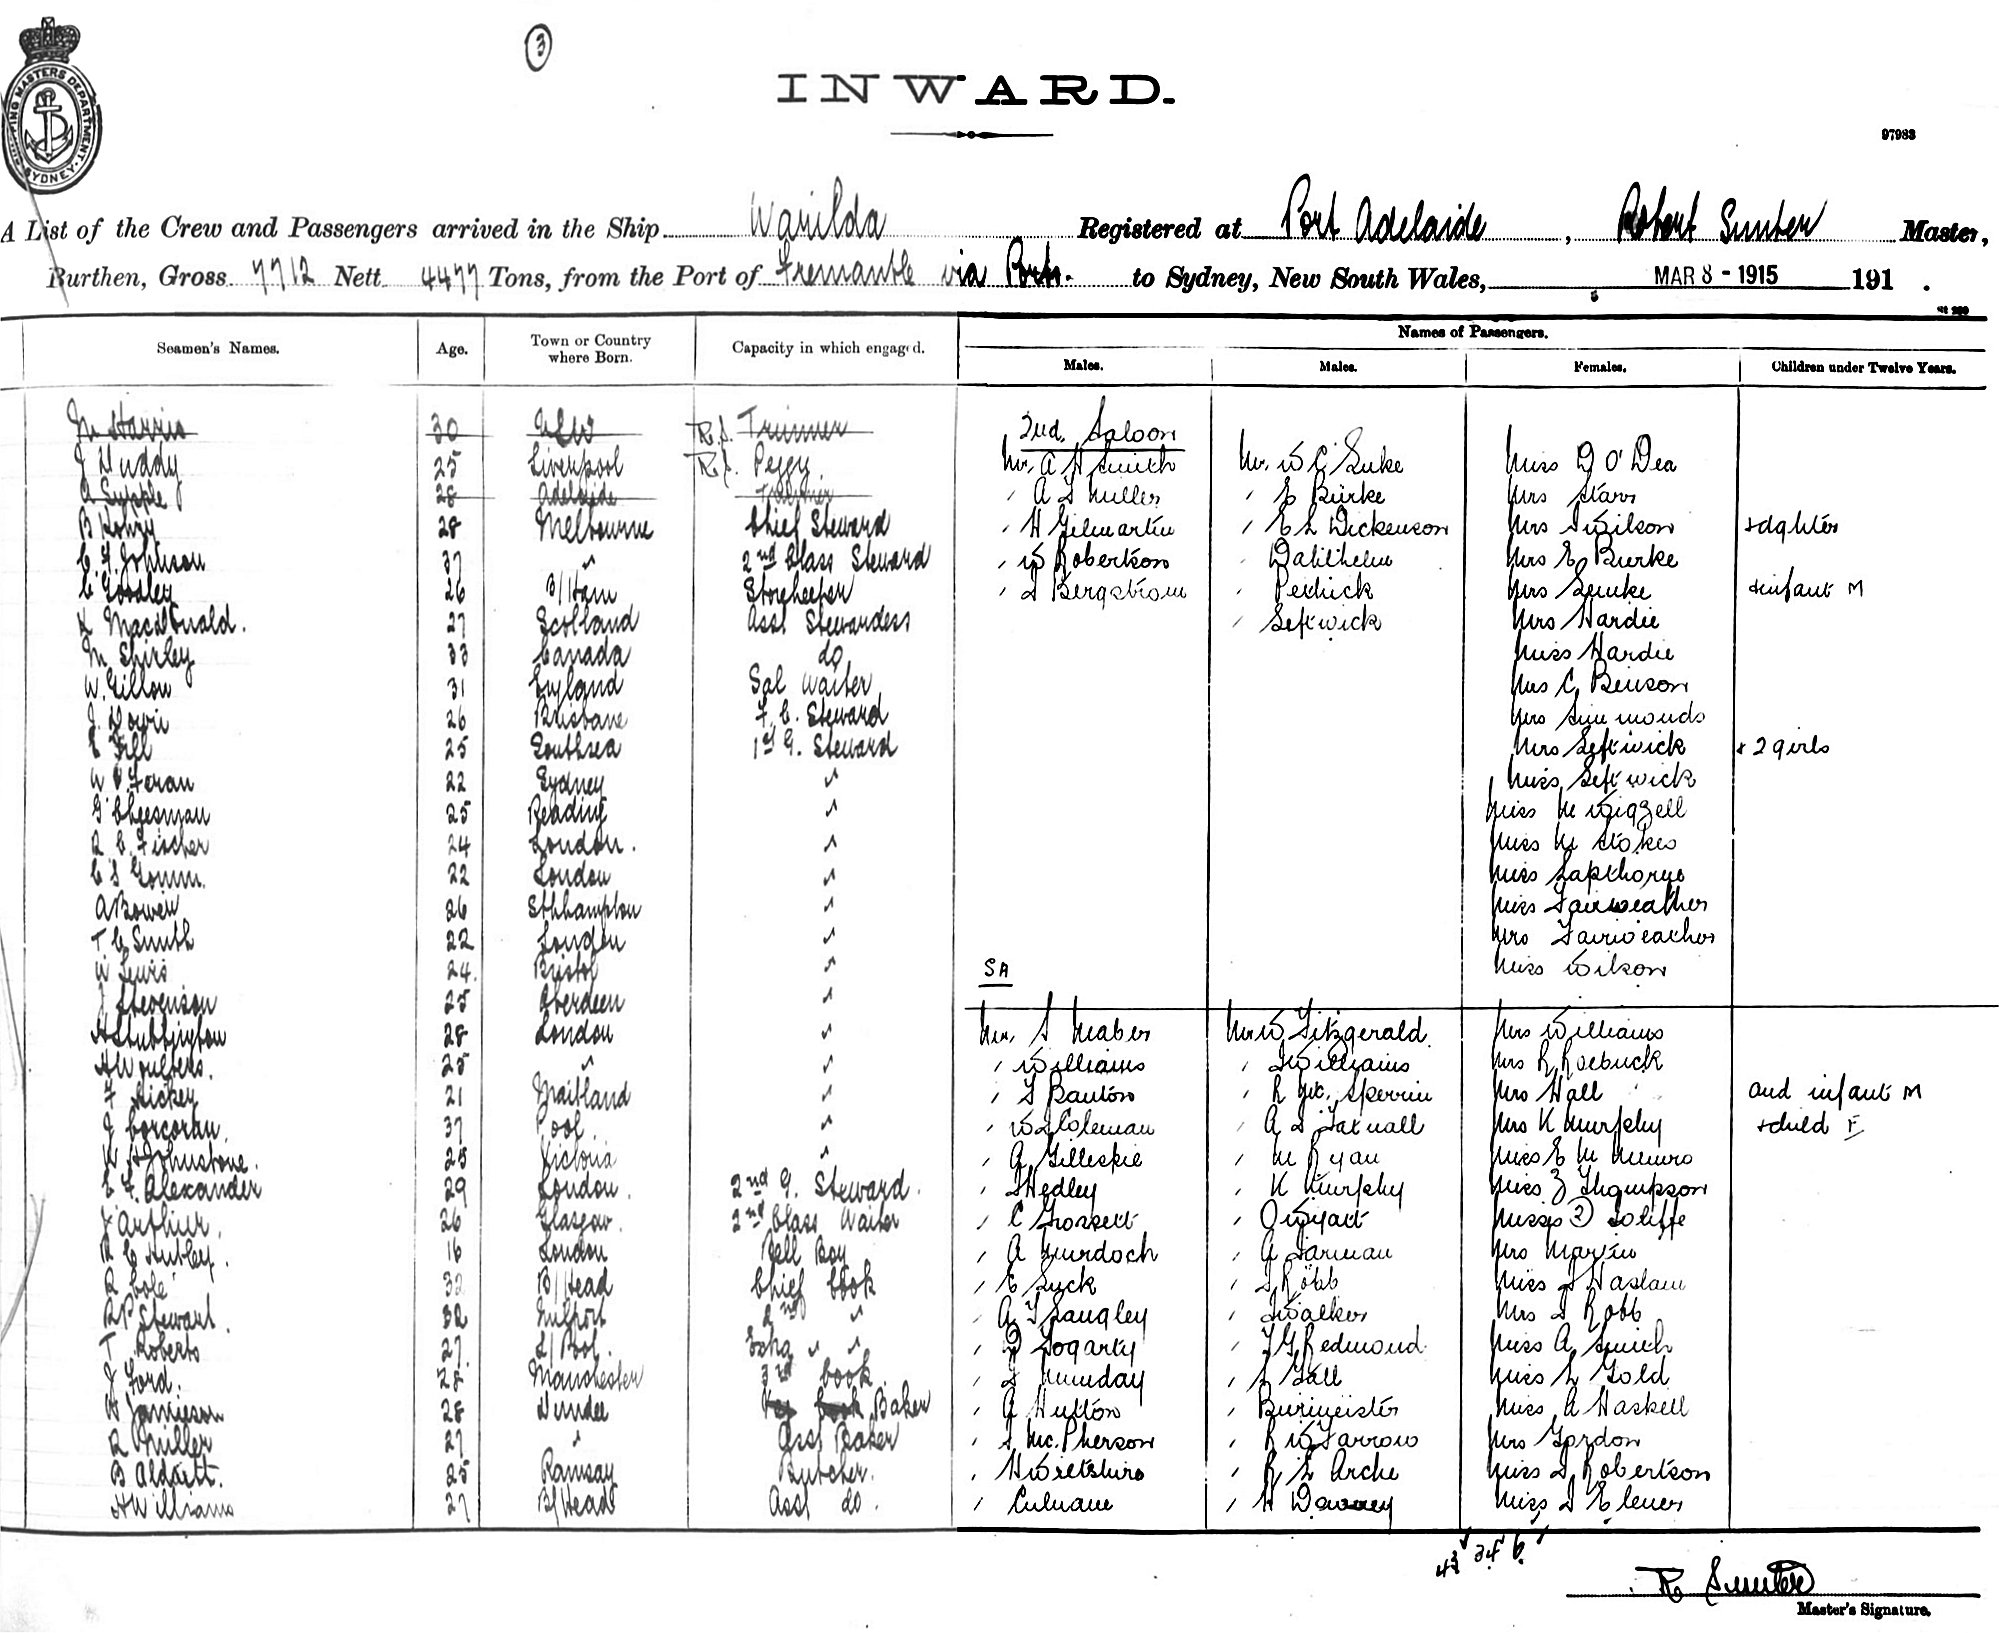 SHIPPING MASTERS DEPARTMENT SYDNEY
3
INWARD.
97983
A List of the Crew and Passengers arrived in the Ship Warilda Registered at Port Adelaide, Robert Sunter Master,
Burthen, Gross 7712 Nett 4477 Tons, from the Port of Fremantle via Ports. to Sydney, New South Wales, MAR 8 - 1915 191 .
Names of Passengers.
Seamen's Names. Age. Town or Country where Born. Capacity in which engaged. Males. Males. Females. Children under Twelve Years.
2nd. Saloon
M Harris 30 NSW R.S. Trimmer
J Huddy 25 Liverpool R.S. Peggy Mr. A H Smith Mr. W C Luke Miss D O'Dea
A Supple 28 Adelaide Trimmer " A S Miller " E Burke Mrs Starr
B Kohry 28 Melbourne Chief Steward " H Gilmartin " E L Dickenson Mrs Wilson + daghter
C. F. Johnson 37 " 2nd Class Steward " W Robertson " Mrs E Burke
C Goodley 26 B/Ham Storekeeper " Bergstrom " Mrs + infant M
MacDonald. 27 Scotland Asst Stewardess " Leftwick Mrs Hardie
M Shirley 33 Canada do Miss Hardie
W. Gillow 31 England Sal Waiter Mrs C Benson
J. Dowie 26 Brisbane F. C. Steward Mrs Simmonds
E Fill 25 Southsea 1st G. Steward Mrs Leftwick + 2 girls
W Foran 22 Sydney " Miss Leftwick
G Cheesman 25 Reading " Miss M Wigzell
R C. Fischer 24 London. " Miss M Stokes
C S Gomm. 22 London " Miss Lapthorne
A Bowen 26 Sthhampton " Miss Fairweather
T C Smith 22 London " Mrs Fairweather
W Lewis 24. Bristol " SA Miss Wilson
J Stevenson 25 Aberdeen "
H Stubbington 28 London " Mr. S Maber Mr W Fitzgerald. Mrs Williams
25 " " " Williams " Williams Mrs R Roebuck
F Hickey 21 Maitland " " Banton " R Mc. Skerrin Mrs Hall and infant M
J Corcoran. 37 Pool. " " Coleman " A Mrs K Murphy + child F
Johnstone. 25 Victoria " " A Gilleskie " M Ryan Miss E M Munro
E F. Alexander 29 London. 2nd G. Steward. " Hedley " K Murphy Miss Z Thompson
J Arthur. 26 Glasgow. 2nd Class Waiter " C Gossett " O Wyatt Misses (2) Joliffe
R C Hubley. 16 London Bell Boy " A Murdoch " A Jarman Mrs Martin
R Cole 32 B/Head Chief Cook " E Luck " Robb Miss Haslam
R P Stewart. 32 Milport 2nd " " A Langley " Walker Mrs Robb
T Roberts 27 L/Pool. Extra " " " Fogarty " F G Redmond Miss A Smith
J Ford. 28 Manchester 3rd Cook " Munday " Hall Miss L Gold
H Jamieson 28 Dundee Baker " A Hutton " Burmeister Miss A Haskell
R Miller 27 " Asst Baker " Mc. Pherson " R W Farrow Mrs Gordon
B Aldritt. 25 Ramsay Butcher. " H Wiltshire " R L Arche Miss Robertson
H Williams 27 B/Head Asst do. " Culnane " H Miss
43 34 9
R Sunter
Master's Signature.